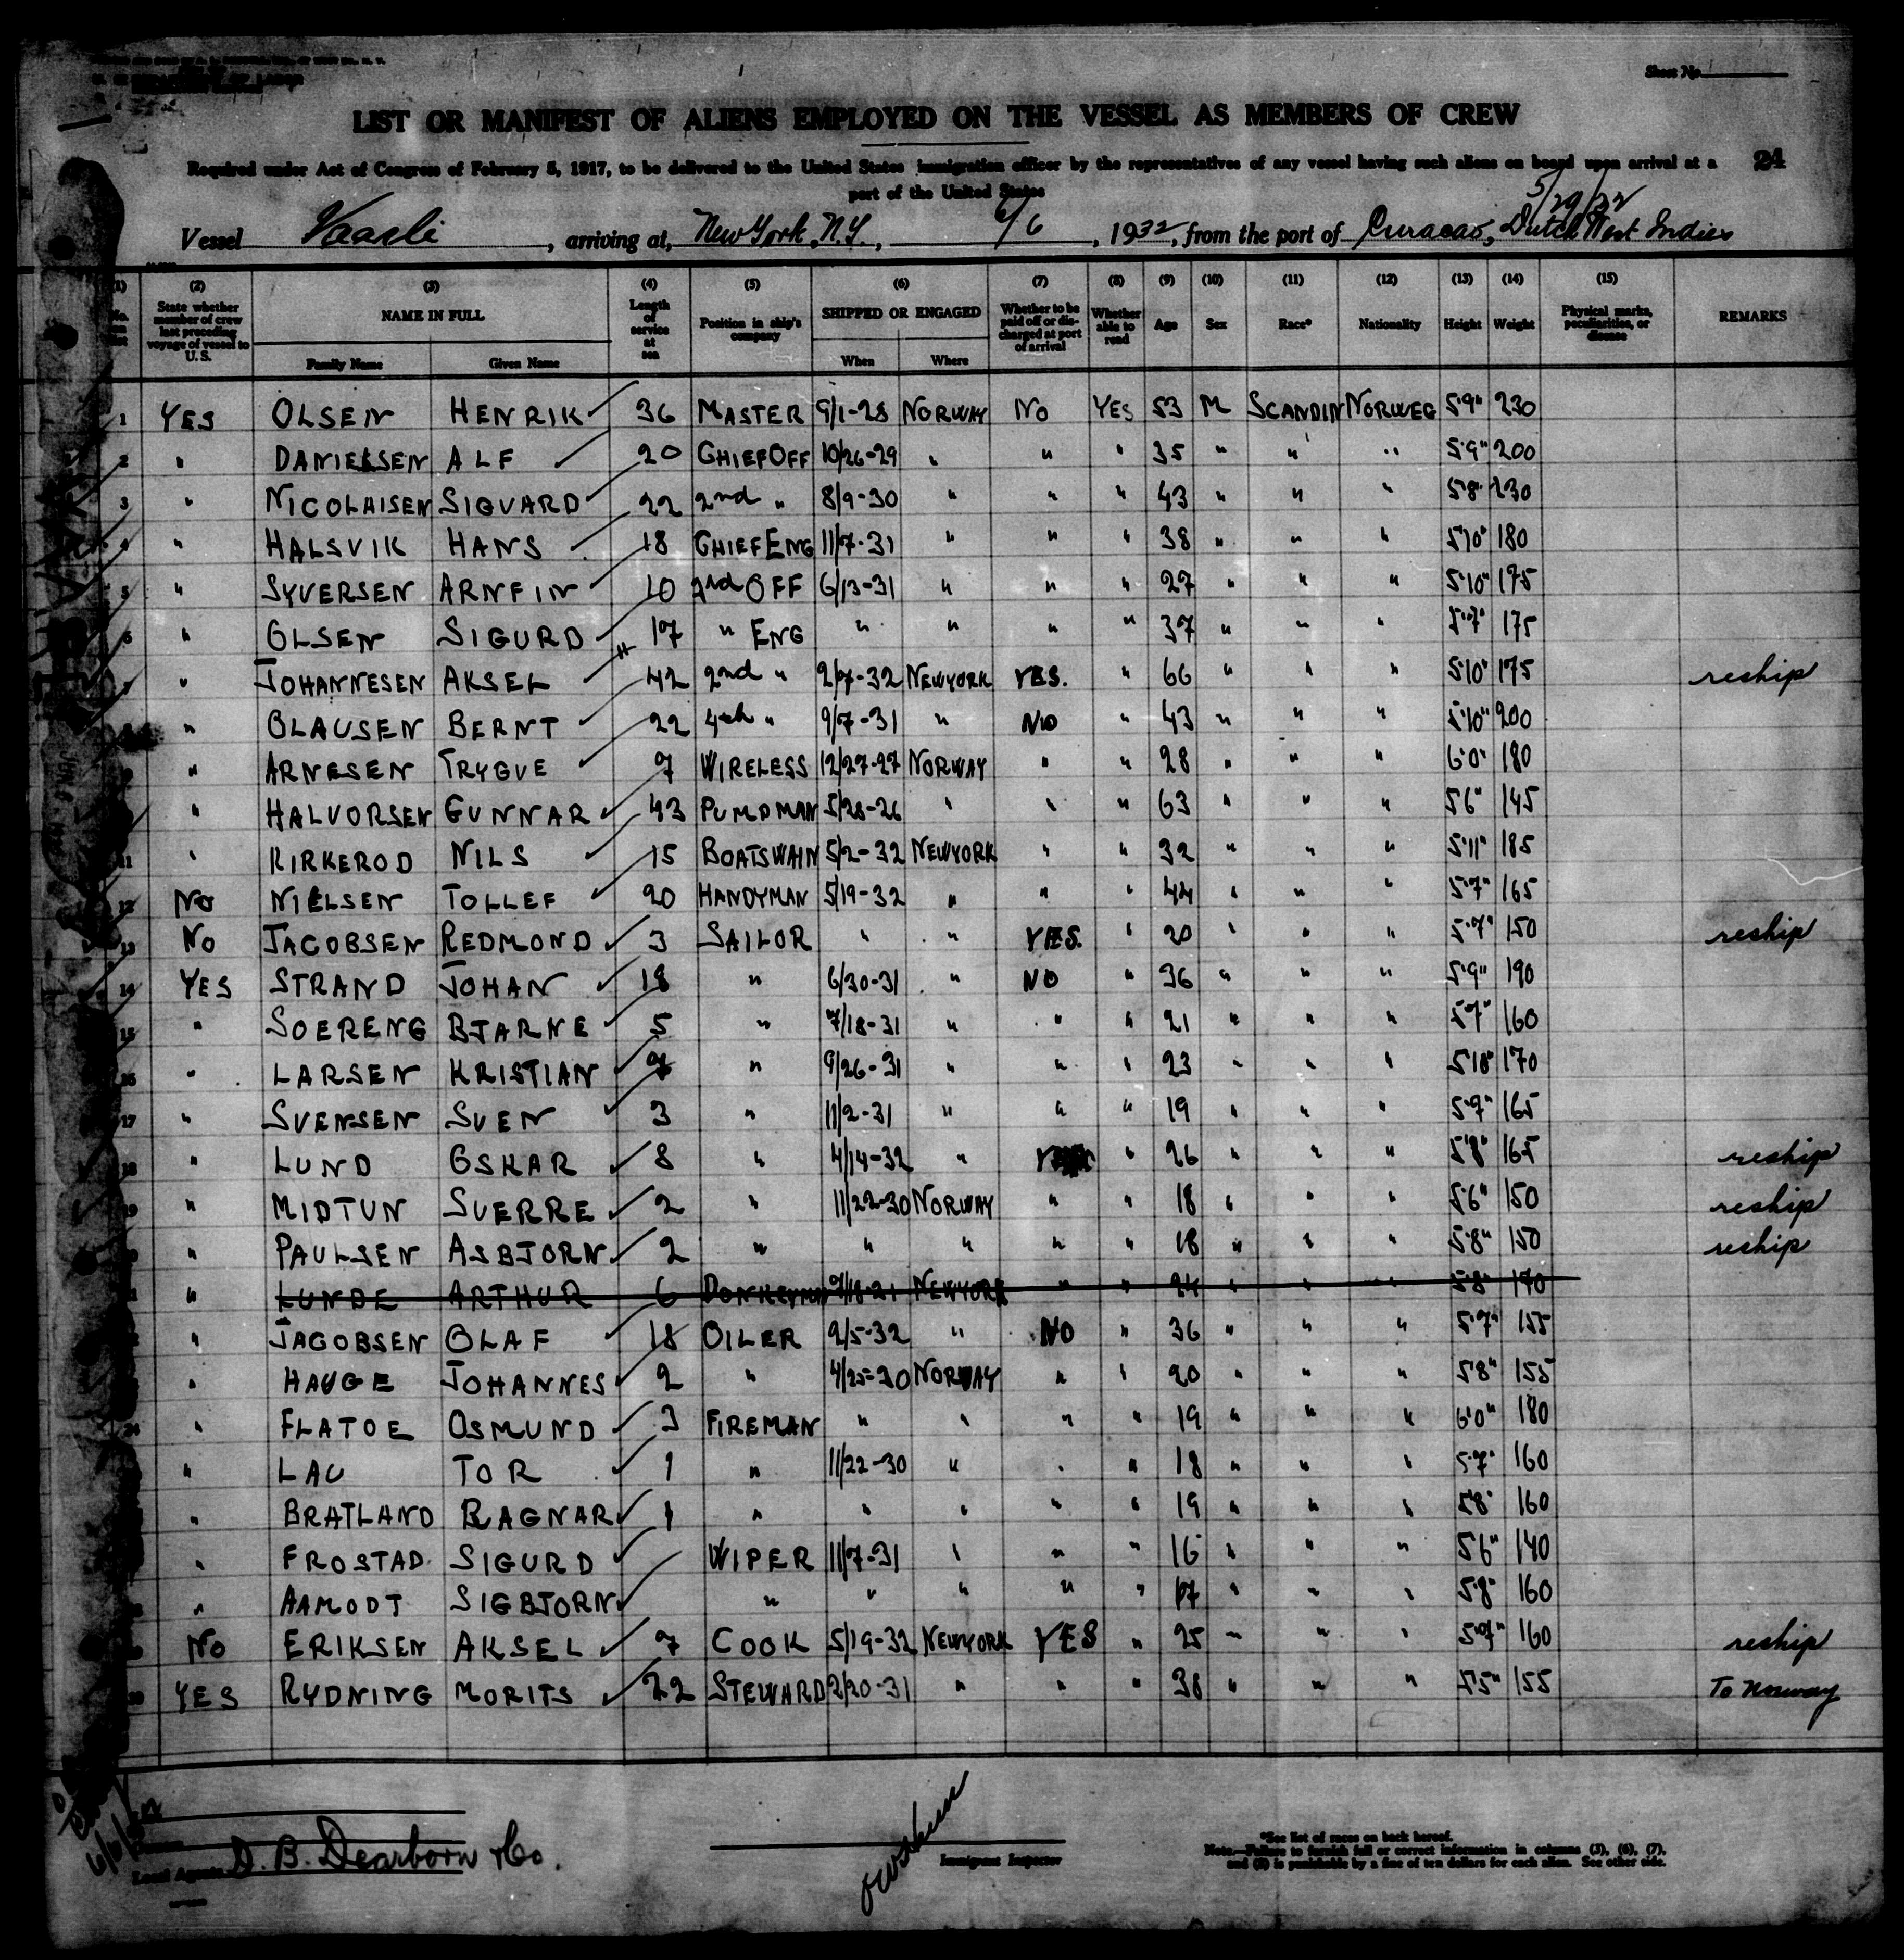 Sheet No.
LIST OR MANIFEST OF ALIENS EMPLOYED ON THE VESSEL AS MEMBERS OF CREW
Required under Act of Congress of February 5, 1917, to be delivered to the United States immigration officer by the representatives of any vessel having such aliens on board upon arrival at a 24
part of the United States
5/29/32
Vessel Vaarli, arriving at, New York, N.Y., 6/6, 1932, from the port of Curacao, Dutch West Indies
(1) (2) (3) (4) (5) (6) (7) (8) (9) (10) (11) (12) (13) (14) (15)
No. on list State whether member of crew last preceding voyage of vessel to U.S. NAME IN FULL Length of service at sea Position in ship's company SHIPPED OR ENGAGED Whether to be paid off or discharged at port of arrival Whether able to read Age Sex Race* Nationality Height Weight Physical marks, peculiarities, or disease REMARKS
Family Name Given Name When Where
1 YES OLSEN HENRIK 36 MASTER 9/1-28 NORWAY NO YES 53 M SCANDIN NORWEG 5'9" 230
2 " DANIELSEN ALF 20 CHIEF OFF 10/26-29 " " " 35 " " " 5'9" 200
3 " NICOLAISEN SIGVARD 22 2nd " 8/9-30 " " " 43 " " " 5'8" 230
4 " HALSVIK HANS 18 CHIEF ENG 11/7-31 " " " 38 " " " 5'10" 180
5 " SYVERSEN ARNFIN 10 2nd OFF 6/13-31 " " " 27 " " " 5'10" 175
6 " OLSEN SIGURD 17 " ENG " " " " 37 " " " 5'7" 175
7 " JOHANNESEN AKSEL 42 2nd " 2/7-32 NEWYORK YES. " 66 " " " 5'10" 175 reship
" CLAUSEN BERNT 22 4th " 9/7-31 " NO " 43 " " " 5'10" 200
" ARNESEN TRYGVE 7 WIRELESS 12/27-27 NORWAY " " 28 " " " 6'0" 180
" HALVORSEN GUNNAR 43 PUMPMAN 5/28-26 " " " 63 " " " 5'6" 145
11 " KIRKEROD NILS 15 BOATSWAIN 5/2-32 NEWYORK " " 32 " " " 5'11" 185
12 NO NIELSEN TOLLEF 20 HANDYMAN 5/19-32 " " " 44 " " " 5'7" 165
13 NO JACOBSEN REDMOND 3 SAILOR " " YES. " 20 " " " 5'7" 150 reship
14 YES STRAND JOHAN 18 " 6/30-31 " NO " 36 " " " 5'9" 190
15 " SOERENG BJARNE 5 " 7/18-31 " " " 21 " " " 5'7" 160
16 " LARSEN KRISTIAN 7 " 9/26-31 " " " 23 " " " 5'10" 170
17 " SVENSEN SVEN 3 " 11/2-31 " " " 19 " " " 5'9" 165
18 " LUND OSKAR 8 " 4/14-32 " " 26 " " " 5'8" 165 reship
19 " MIDTUN SVERRE 2 " 11/22-30 NORWAY " " 18 " " " 5'6" 150 reship
" PAULSEN ASBJORN 2 " " " " " 18 " " " 5'8" 150 reship
" LUNDE ARTHUR 6 DONKEYMAN 9/18-31 NEWYORK " " 24 " " " 5'8" 170
" JACOBSEN OLAF 18 OILER 2/5-32 " NO " 36 " " " 5'7" 155
" HAUGE JOHANNES 2 " 4/25-30 NORWAY " " 20 " " " 5'8" 155
24 " FLATOE OSMUND 3 FIREMAN " " " " 19 " " " 6'0" 180
" LAU TOR 1 " 11/22-30 " " " 18 " " " 5'7" 160
" BRATLAND RAGNAR 1 " " " " " 19 " " " 5'8" 160
" FROSTAD SIGURD WIPER 11/7-31 " " " 16 " " " 5'6" 140
" AAMODT SIGBJORN " " " " " 17 " " " 5'8" 160
NO ERIKSEN AKSEL 7 COOK 5/19-32 NEWYORK YES " 25 " " " 5'7" 160 reship
30 YES RYDNING MORITS 22 STEWARD 2/20-31 " " " 38 " " " 5'5" 155 To Norway
Local Agents D. B. Dearborn & Co.
Immigrant Inspector
*See list of races on back hereof.
Note.—Failure to furnish full or correct information in columns (3), (6), (7),
and (8) is punishable by a fine of ten dollars for each alien. See other side.